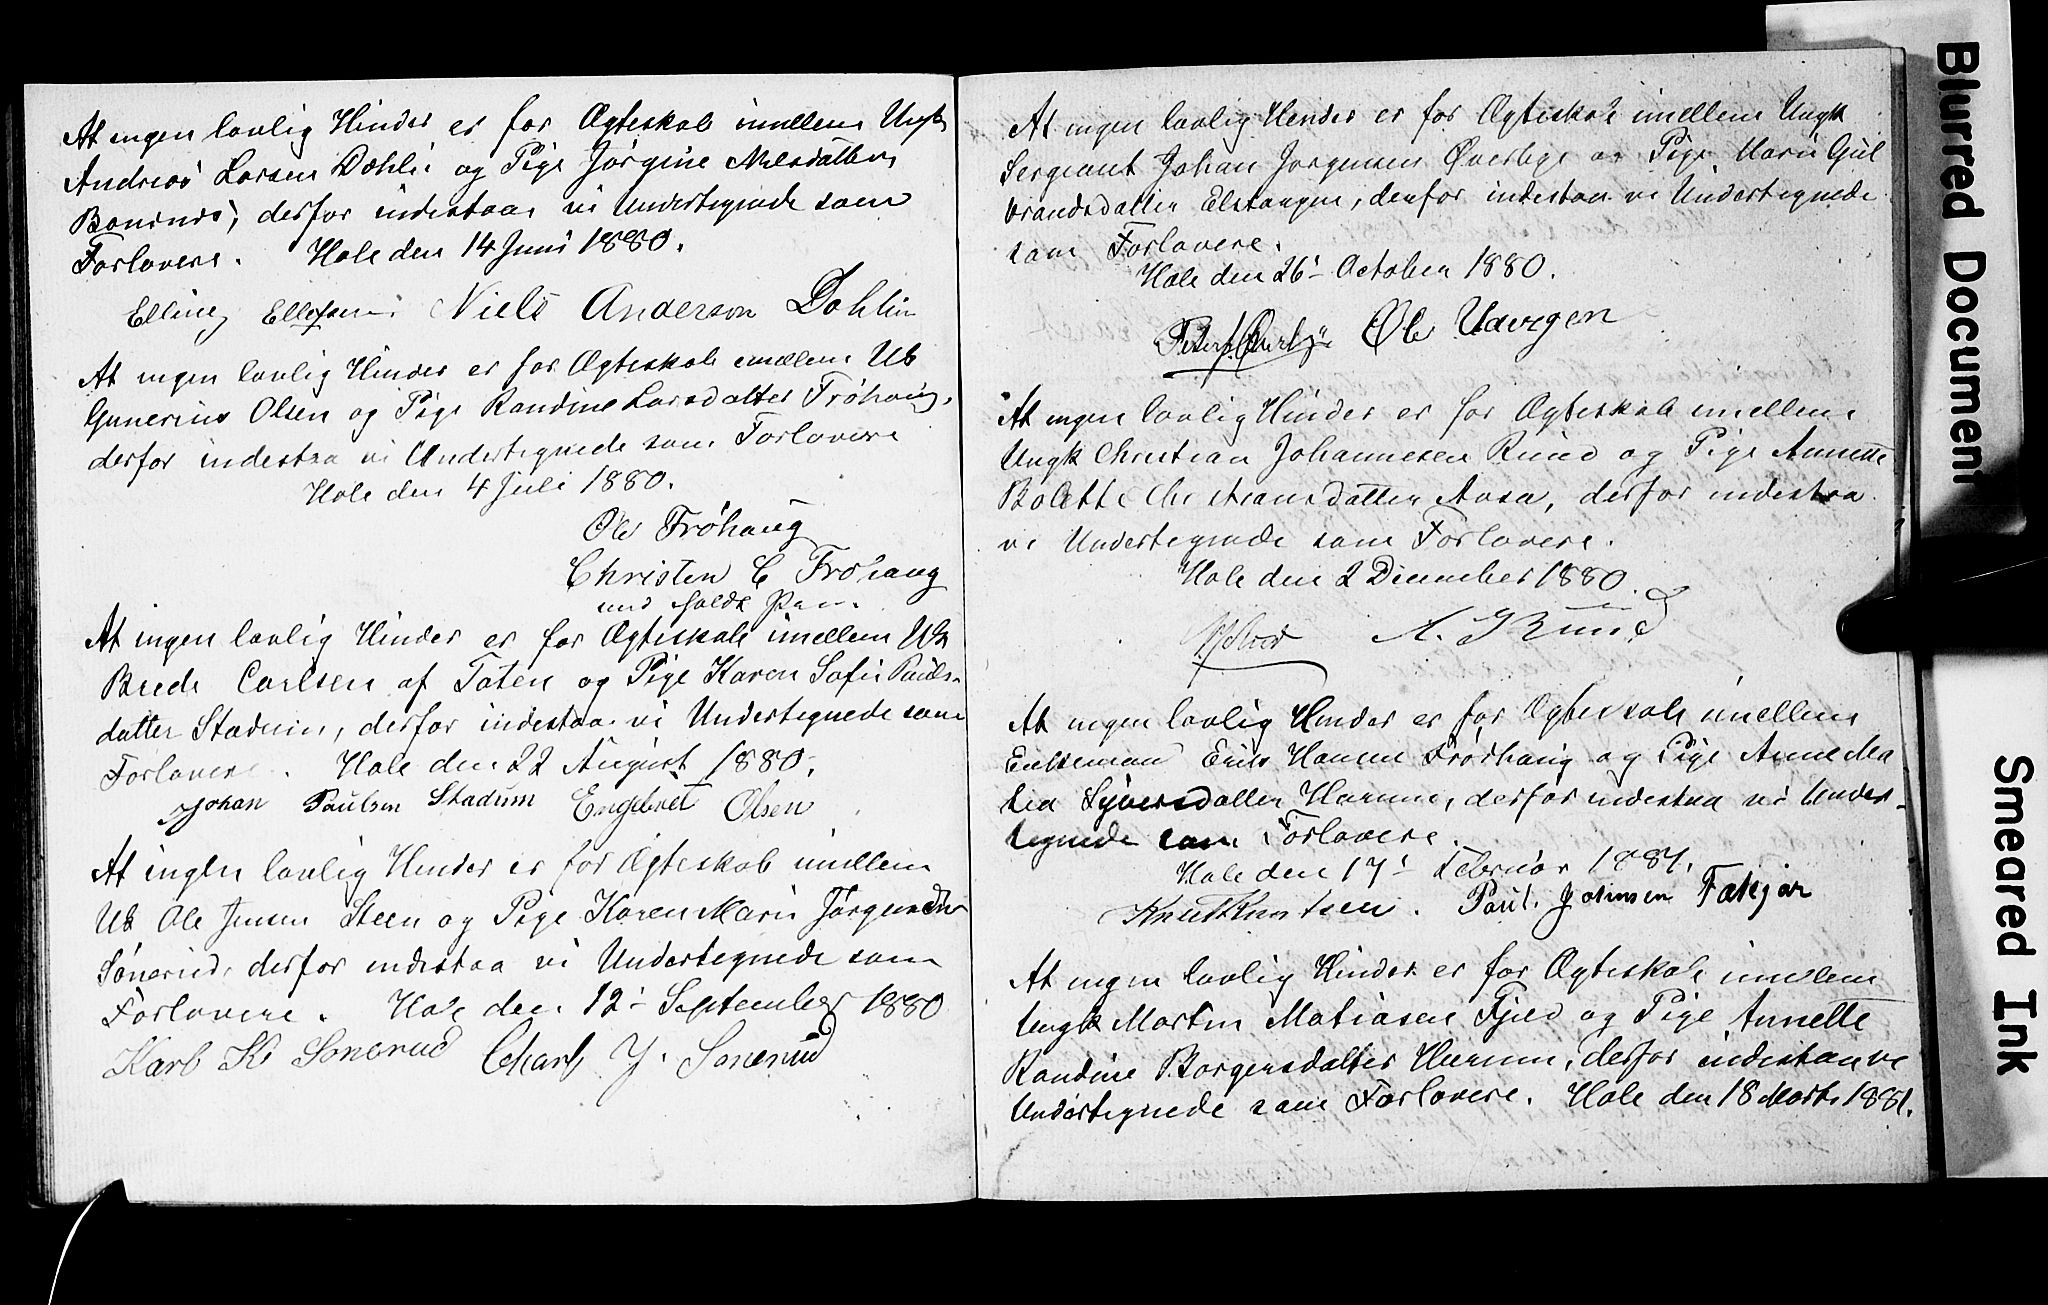 At ingen lovlig Hinder er for Ægteskab imellem Ungk
Andreas Larsen Dæhli og Pige Jørgine Nilsdatter
derfor indestaa vi Undertegnede som
Forlovere. Hole den 14 Juni 1880.
Elling Ellefsen Niels Anderson Dohlin
At ingen lovlig Hinder er for Ægteskab imellem Uk
Gunerius Olsen og Pige Randine Larsdatter Frøhaug,
derfor indestaa vi Undertegnede som Forlovere
Hole den 4 Juli 1880.
Ole Frøhaug
Christen C Frøhaug
med holdt Pen.
At ingen lovlig Hinder er for Ægteskab imellem Uk
Brede Carlsen af Toten og Pige Karen Sofie Pauls-
datter Stadum, derfor indestaa vi Undertegnede som
Forlovere. Hole den 22 August 1880.
Johan Paulsen Stadum Engebret Olsen
At ingen lovlig Hinder er for Ægteskab imellem
Uk Ole Jensen Steen og Pige Karen Marie Jørgensdtr
Sønerud, derfor indestaa vi Undertegnede som
Forlovere. Hole den 12- September 1880
Karl K Sonerud Charl J. Sonerud
At ingen lovlig Hinder er for Ægteskab imellem Ungk
Sergeant Johan Jørgensen og Pige Marie Gul
brandsdatter Elstangen, derfor indestaa vi Undertegnede
som Forlovere.
Hole den 26- October 1880.
Ole
At ingen lovlig Hinder er for Ægteskab imellem
Ungk Christian Johannesen Rund og Pige Annette
Bolette Christiansdatter Aasa, derfor indestaa
vi Undertegnede som Forlovere.
Hole den 2 December 1880.
A. Rund
At ingen lovlig Hinder er for Ægteskab imellem
Enkemand Erik Hansen Frøshaug og Pige Anne Ma
tea Syversdatter Harum, derfor indestaa vi Under-
tegnede som Forlovere.
Hole den 17- Februar 1881.
Knut Knutsen. Paul Johnsen Fækjør
At ingen lovlig Hinder er for Ægteskab imellem
Ungk Martin Matiasen Fjeld og Pige Annette
Randine Borgersdatter Hurum, derfor indestaa vi
Undertegnede som Forlovere. Hole den 18 Marts 1881.
Blurred Document
Smeared Ink